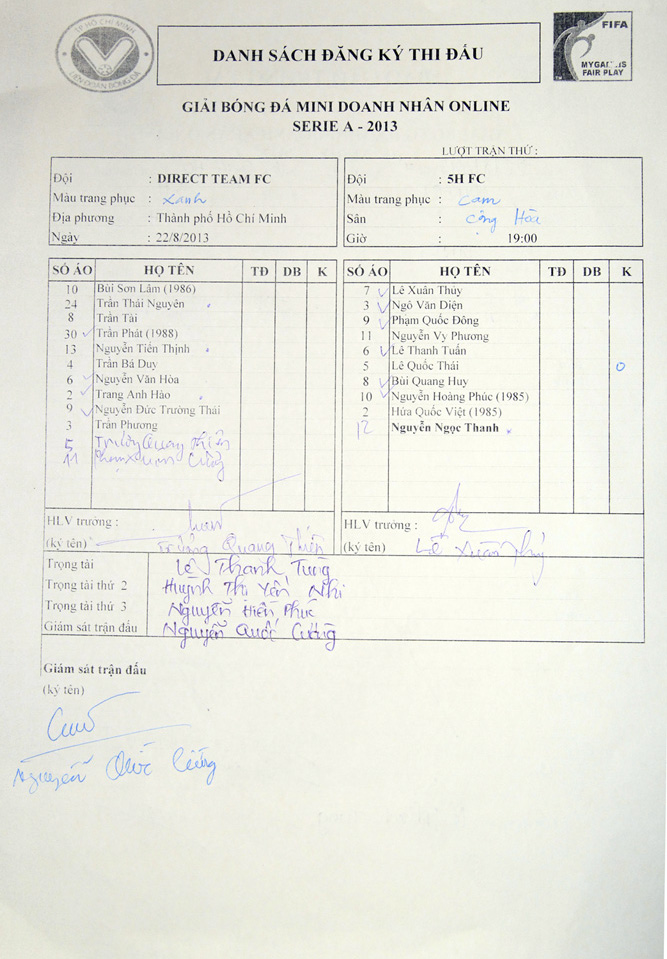 TP HỒ CHÍ MINH
LIÊN ĐOÀN BÓNG ĐÁ
DANH SÁCH ĐĂNG KÝ THI ĐẤU
FIFA
FAIR PLAY
GIẢI BÓNG ĐÁ MINI DOANH NHÂN ONLINE
SERIE A - 2013
LƯỢT TRẬN THỨ :
Đội : DIRECT TEAM FC
Màu trang phục : Xanh
Địa phương : Thành phố Hồ Chí Minh
Ngày : 22/8/2013
Đội : 5H FC
Màu trang phục : Cam
Sân : Cộng Hòa
Giờ : 19:00
SỐ ÁO HỌ TÊN TĐ DB K
10 Bùi Sơn Lâm (1986)
24 Trần Thái Nguyên
8 Trần Tài
30 Trần Phát (1988)
13 Nguyễn Tiến Thịnh
4 Trần Bá Duy
6 Nguyễn Văn Hòa
2 Trang Anh Hào
9 Nguyễn Đức Trường Thái
3 Trần Phương
5 Trương Quang Thiên
11
SỐ ÁO HỌ TÊN TĐ DB K
7 Lê Xuân Thủy
3 Ngô Văn Diện
9 Phạm Quốc Đông
11 Nguyễn Vy Phương
6 Lê Thanh Tuấn
5 Lê Quốc Thái
8 Bùi Quang Huy
10 Nguyễn Hoàng Phúc (1985)
2 Hứa Quốc Việt (1985)
12 Nguyễn Ngọc Thanh
HLV trưởng :
(ký tên) Trương Quang Thiên
HLV trưởng :
(ký tên) Lê Xuân Thủy
Trọng tài Lê Thanh Tùng
Trọng tài thứ 2 Huỳnh Thị Yến Nhi
Trọng tài thứ 3 Nguyễn Hiền Phúc
Giám sát trận đấu Nguyễn Quốc Cường
Giám sát trận đấu
(ký tên)
Nguyễn Quốc Cường